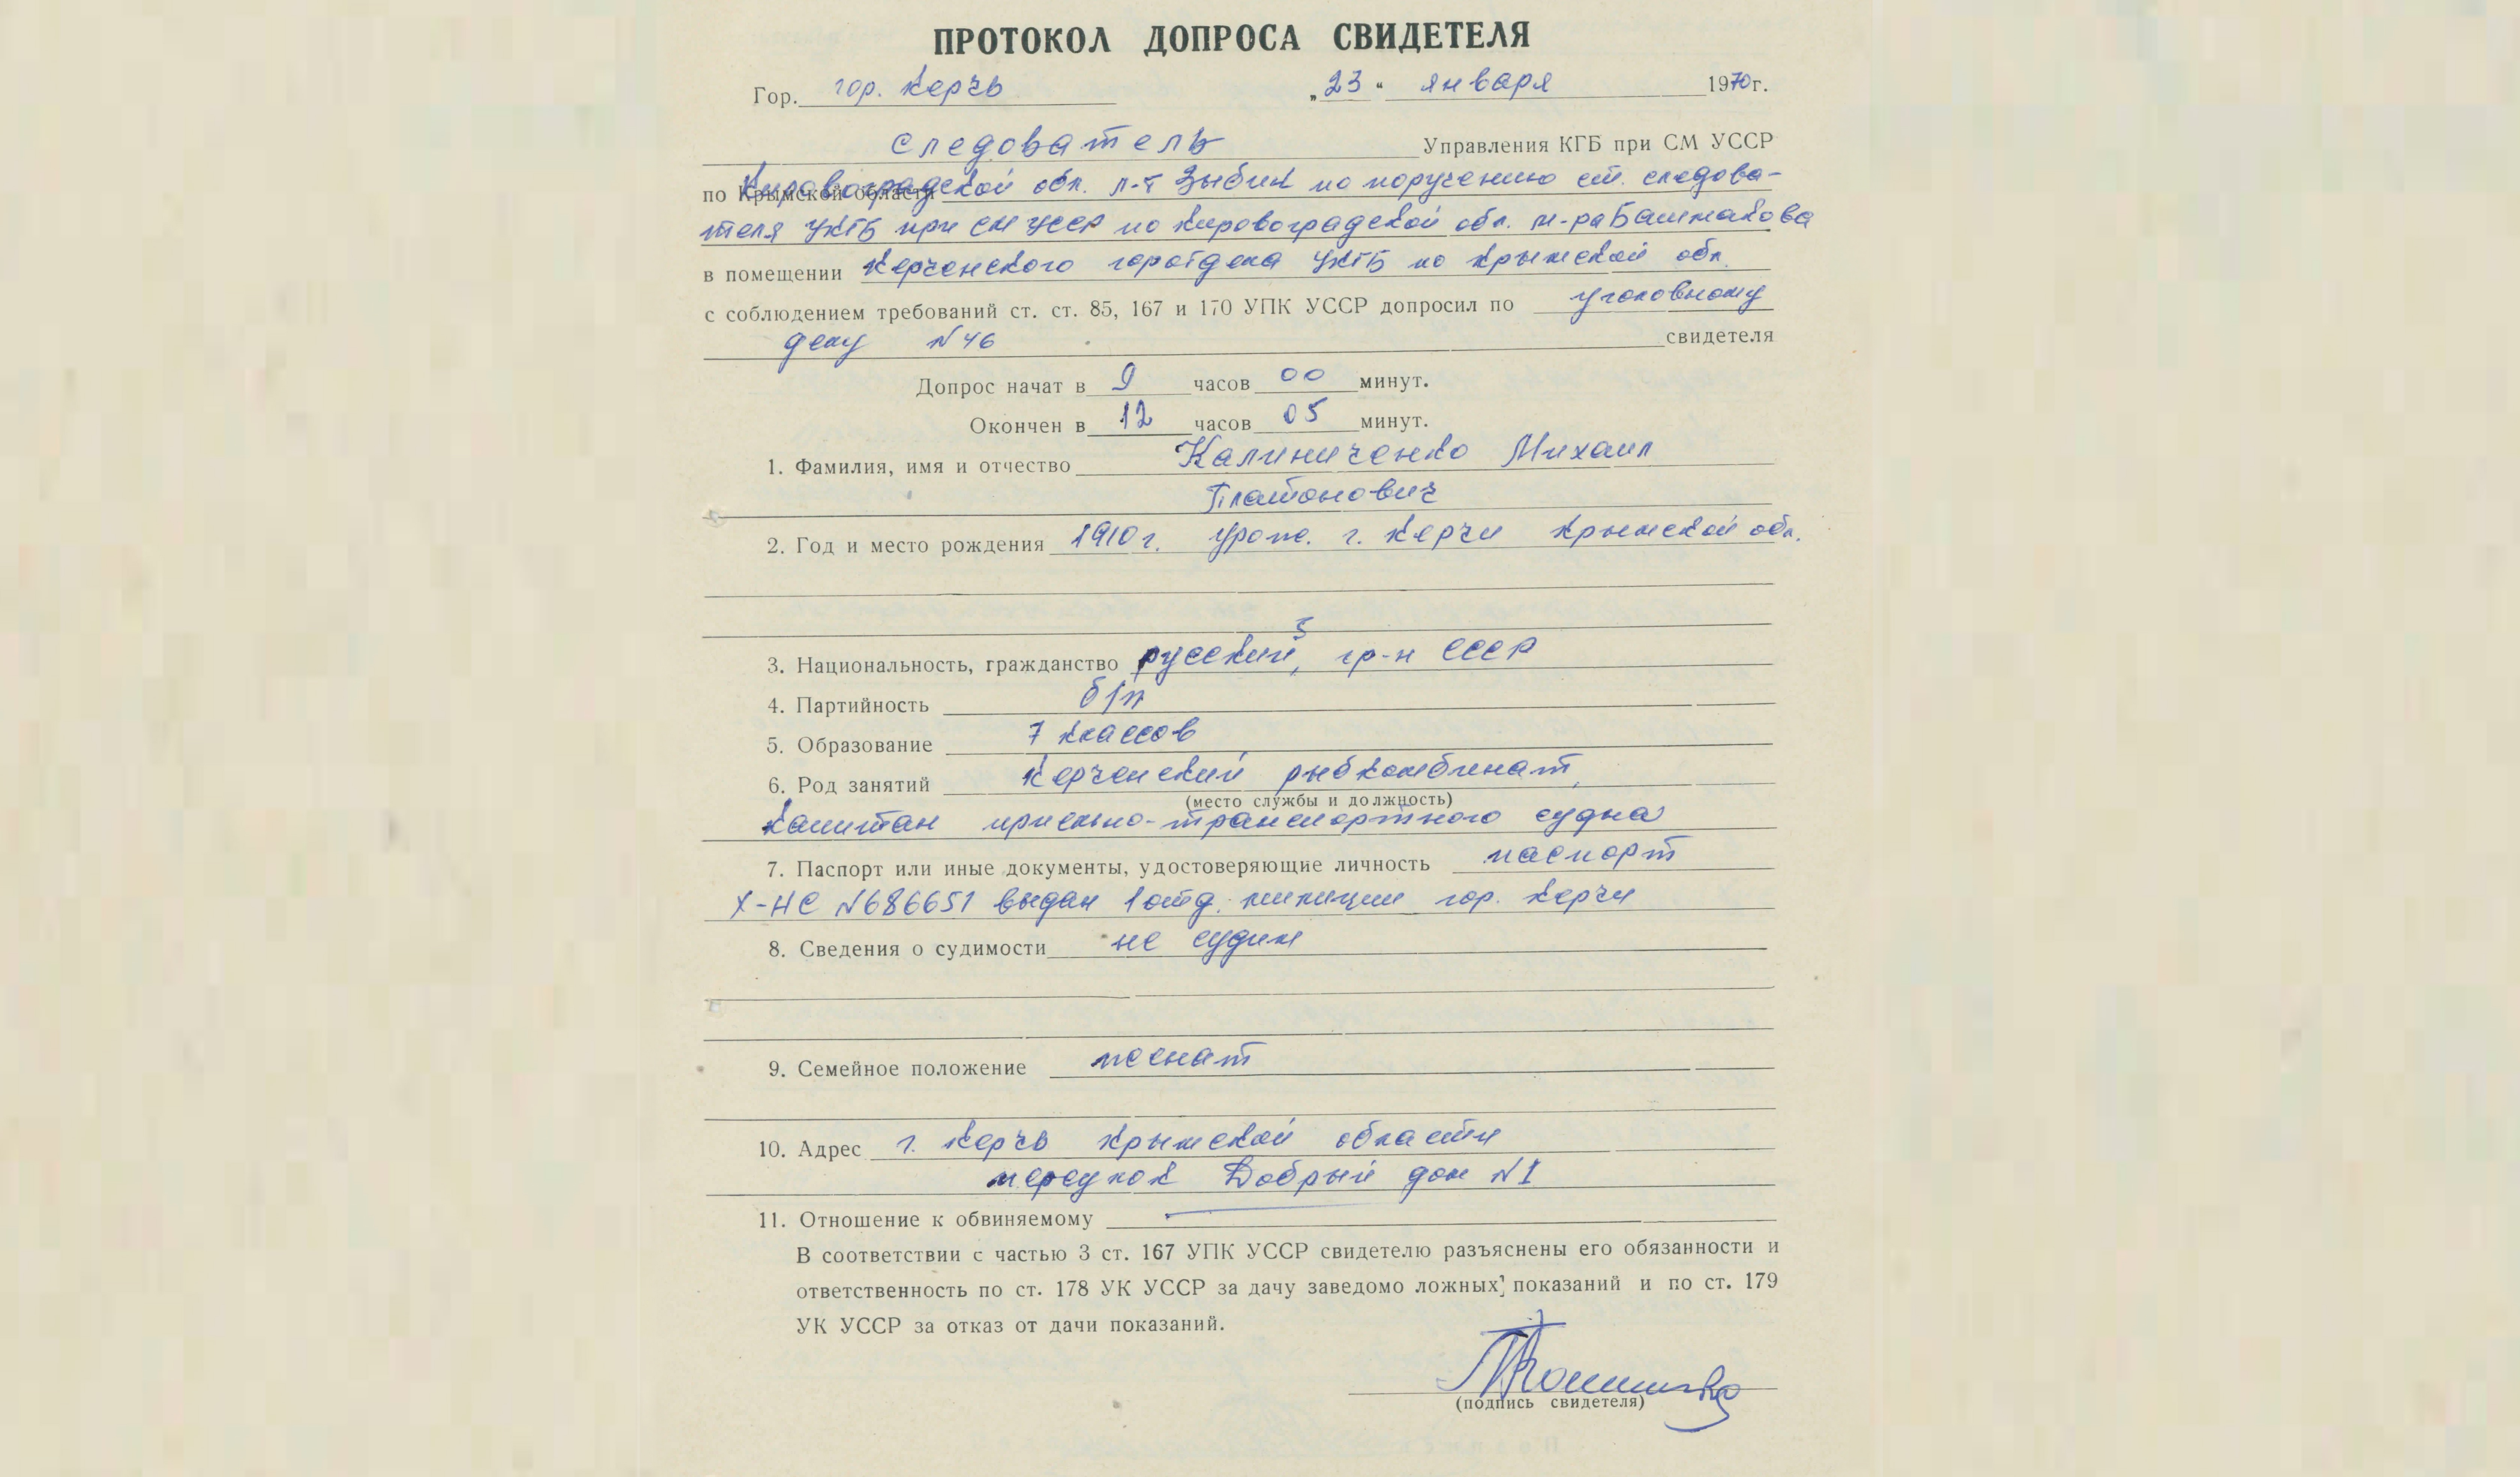 ПРОТОКОЛ ДОПРОСА СВИДЕТЕЛЯ
Гор. гор. Керчь „23“ января 1970г.
следователь Управления КГБ при СМ УССР
по Крымской области Кировоградской обл. л-т Зыбин по поручению ст. следова-
теля УКГБ при СМ УССР по Кировоградской обл. м-ра Башмакова
в помещении Керченского горотдела УКГБ по Крымской обл.
с соблюдением требований ст. ст. 85, 167 и 170 УПК УССР допросил по уголовному
делу N46 свидетеля
Допрос начат в 9 часов 00 минут.
Окончен в 12 часов 05 минут.
1. Фамилия, имя и отчество Калиниченко Михаил
Платонович
2. Год и место рождения 1910г. урож. г. Керчи Крымской обл.
3. Национальность, гражданство русский, гр-н СССР
4. Партийность б/п
5. Образование 7 классов
6. Род занятий Керченский рыбкомбинат,
(место службы и должность)
капитан приемно-транспортного судна
7. Паспорт или иные документы, удостоверяющие личность паспорт
X-НС N686651 выдан 1 отд. милиции гор. Керчи
8. Сведения о судимости не судим
9. Семейное положение женат
10. Адрес г. Керчь Крымской области
переулок Добрый дом N1
11. Отношение к обвиняемому
В соответствии с частью 3 ст. 167 УПК УССР свидетелю разъяснены его обязанности и
ответственность по ст. 178 УК УССР за дачу заведомо ложных показаний и по ст. 179
УК УССР за отказ от дачи показаний.
(подпись свидетеля)